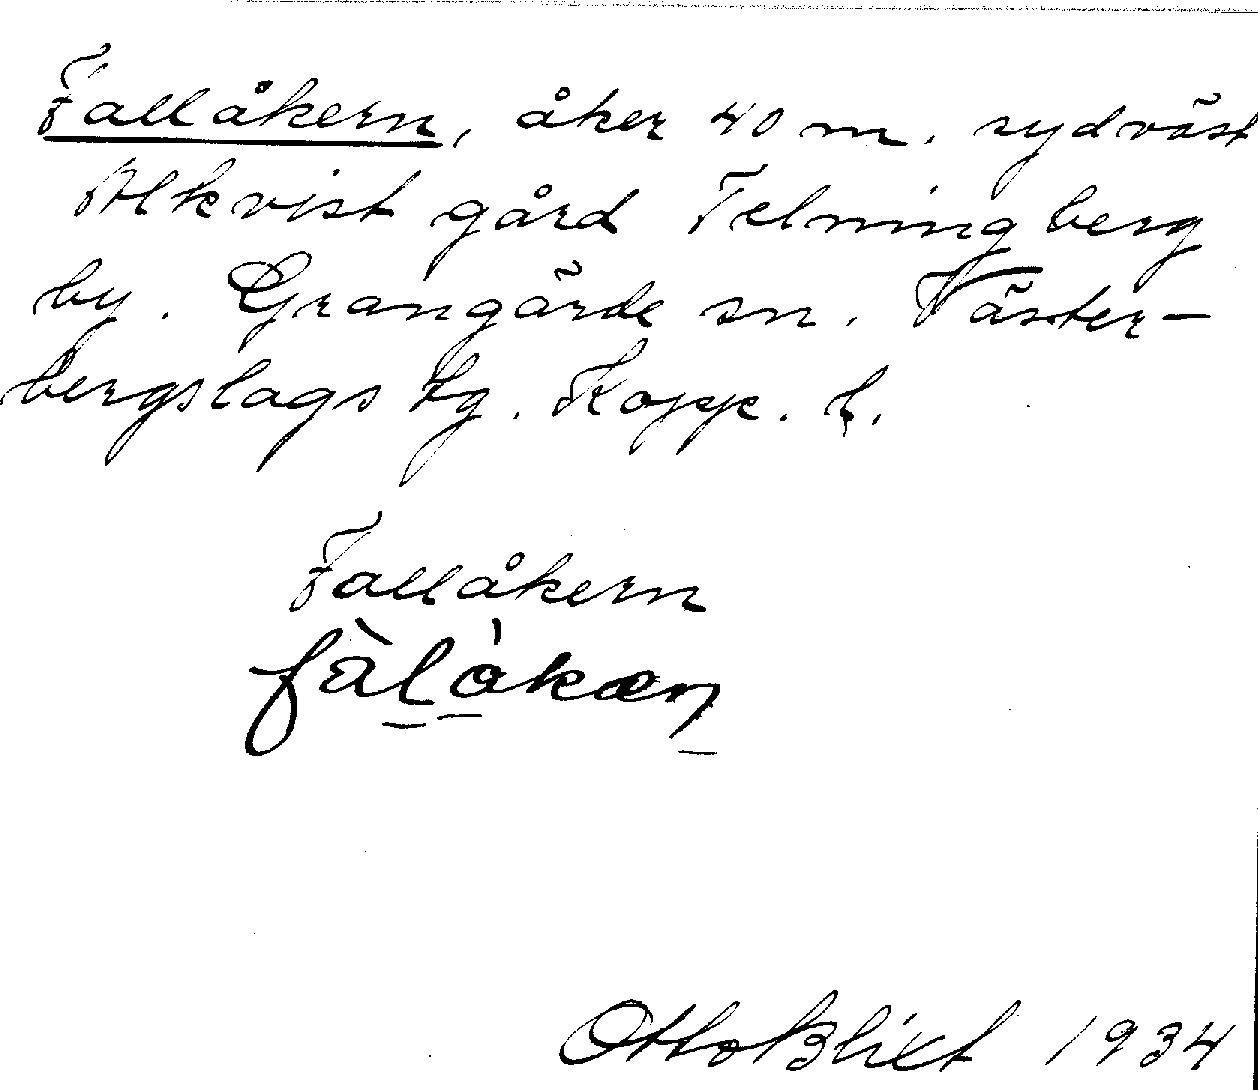 Fallåkern, åker 40 m. sydväst
Alkvist gård Telningberg
by. Grangärde sn. Väster-
bergslags tg. Kopp. l.
Fallåkern
fàlåkæn
Otto Blixt 1934